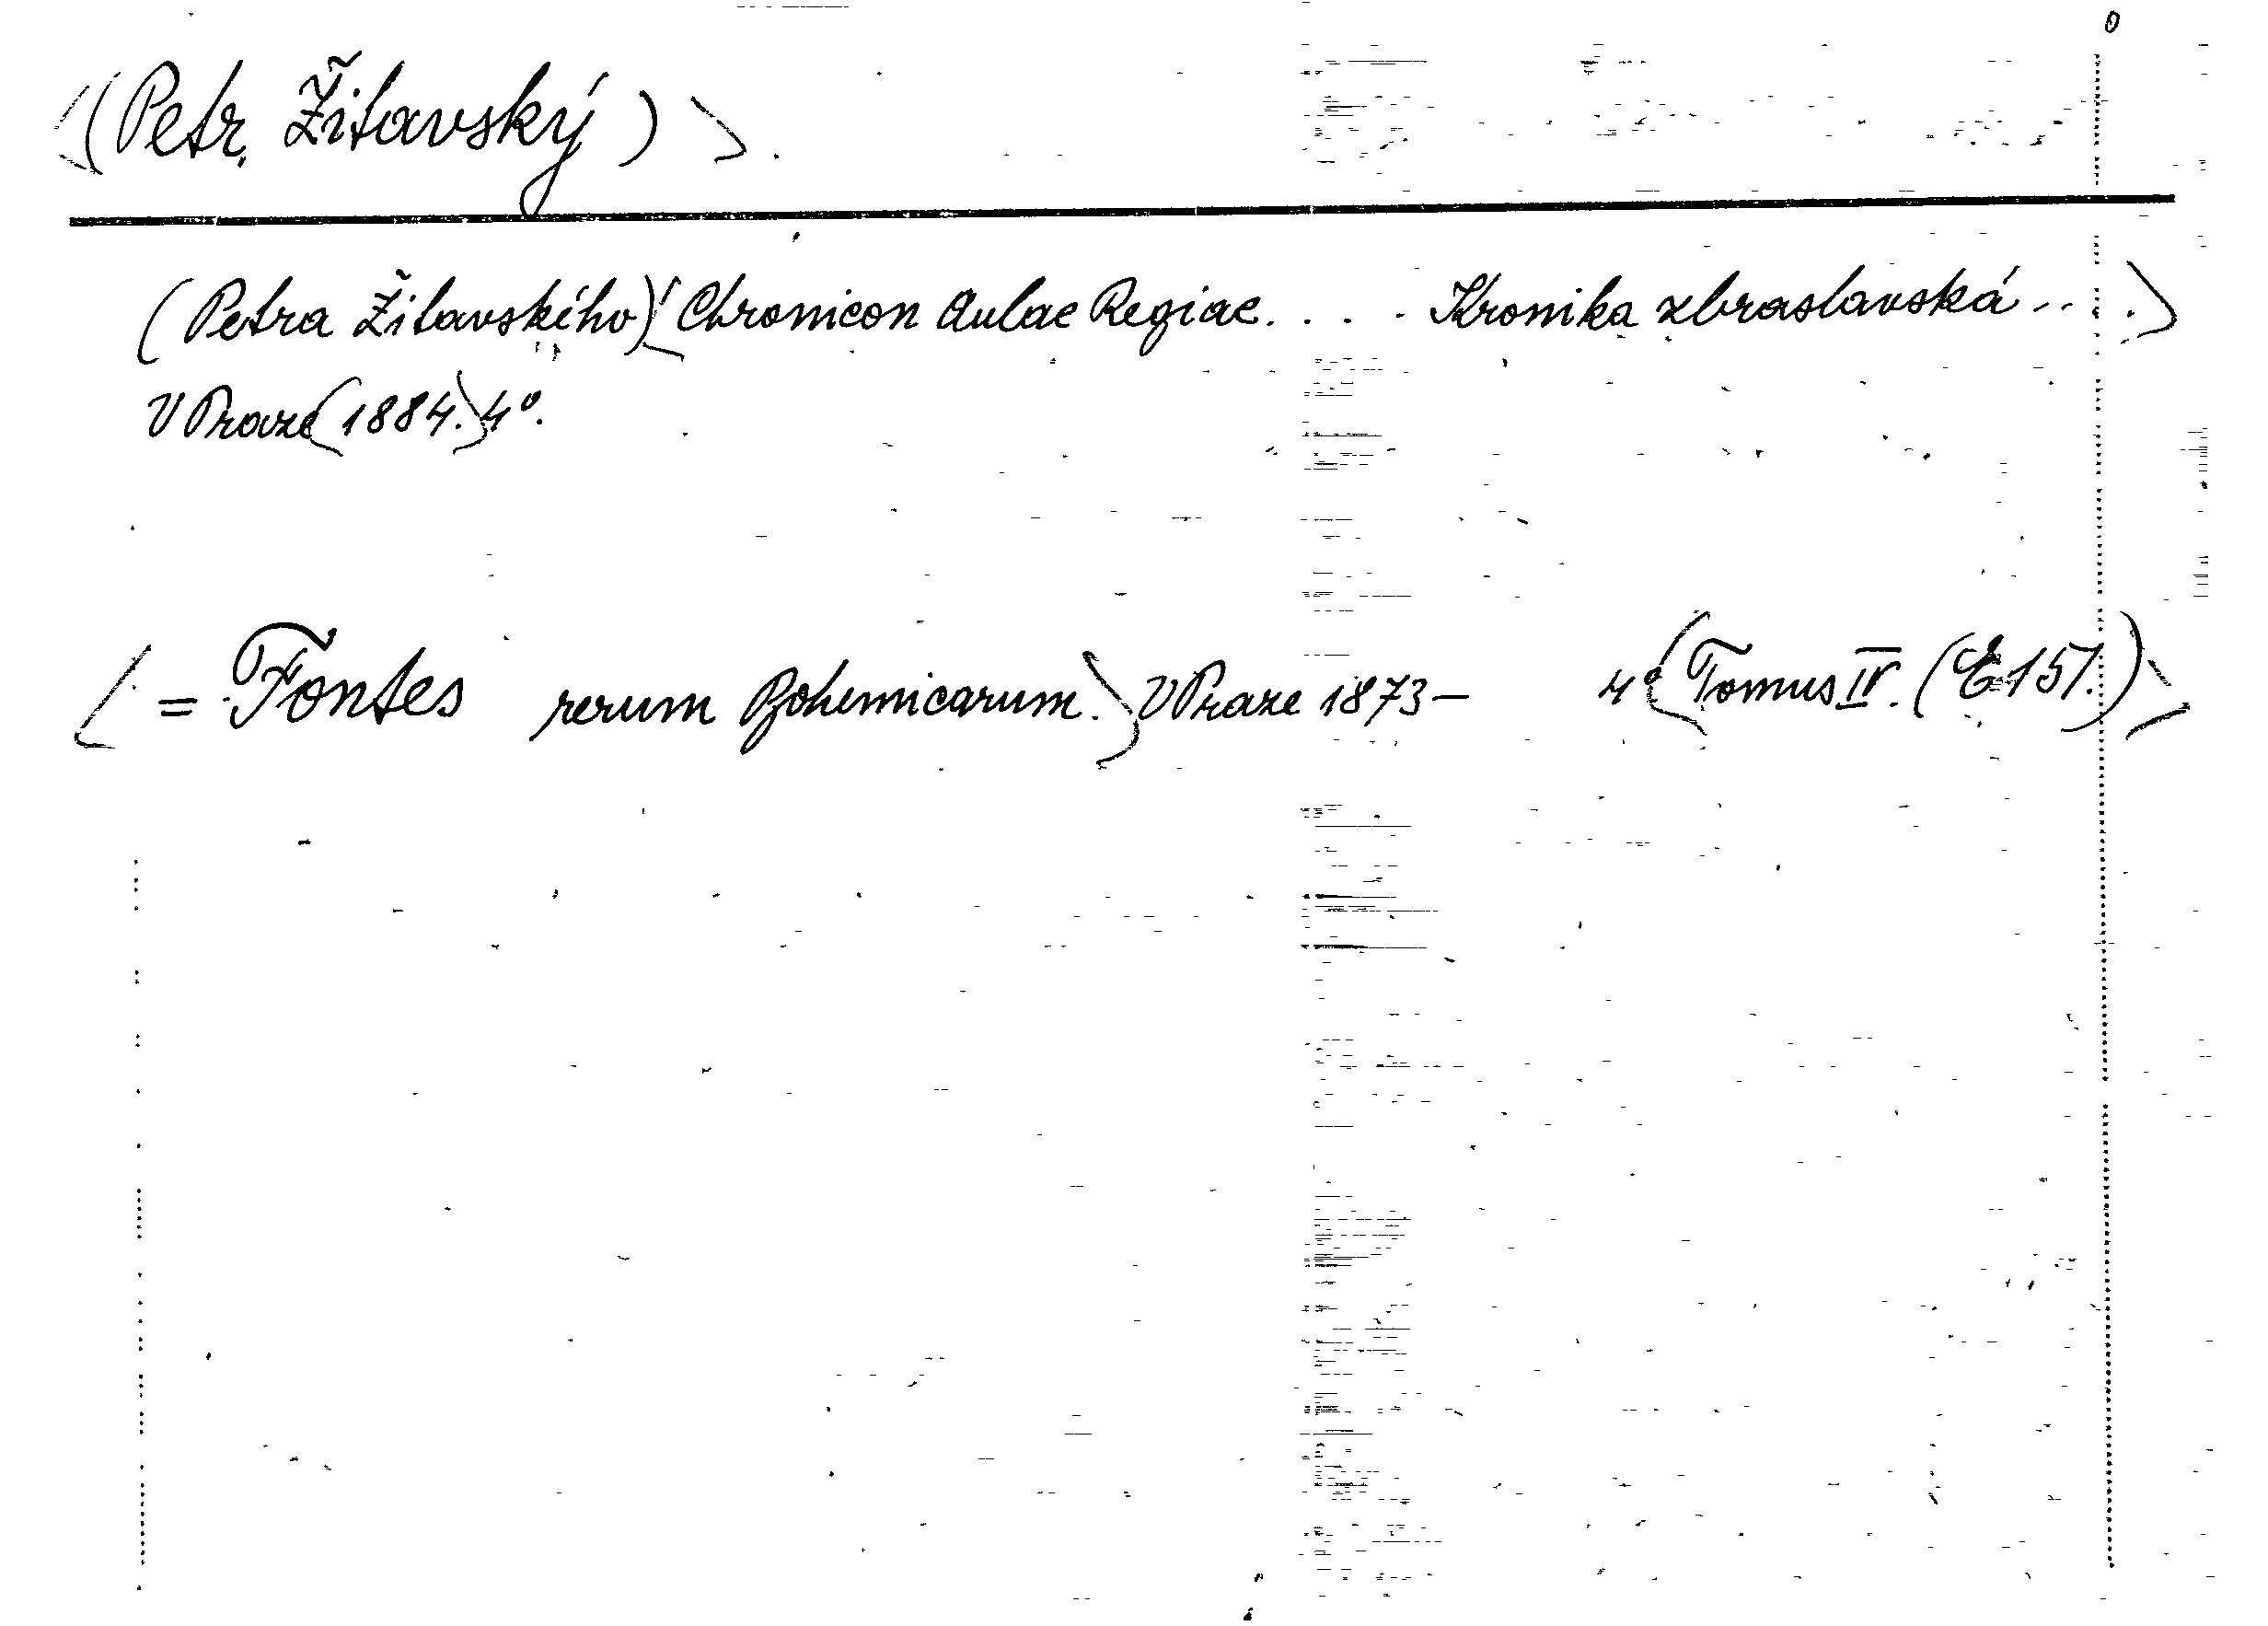 <(Petr Žitavský)>.
(Petra Žitavského)<Chronicon Aulae Regiae. . . . Kronika zbraslavská ....>
V Praze<1884.>4°.
<= Fontes rerum Bohemicarum.>V Praze 1873— 4°<Tomus IV. (E 151.)>